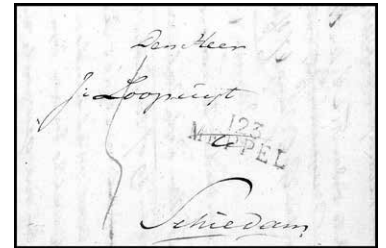 Den Heer
J. Loopuijt
123
MEPPEL
a
Schiedam